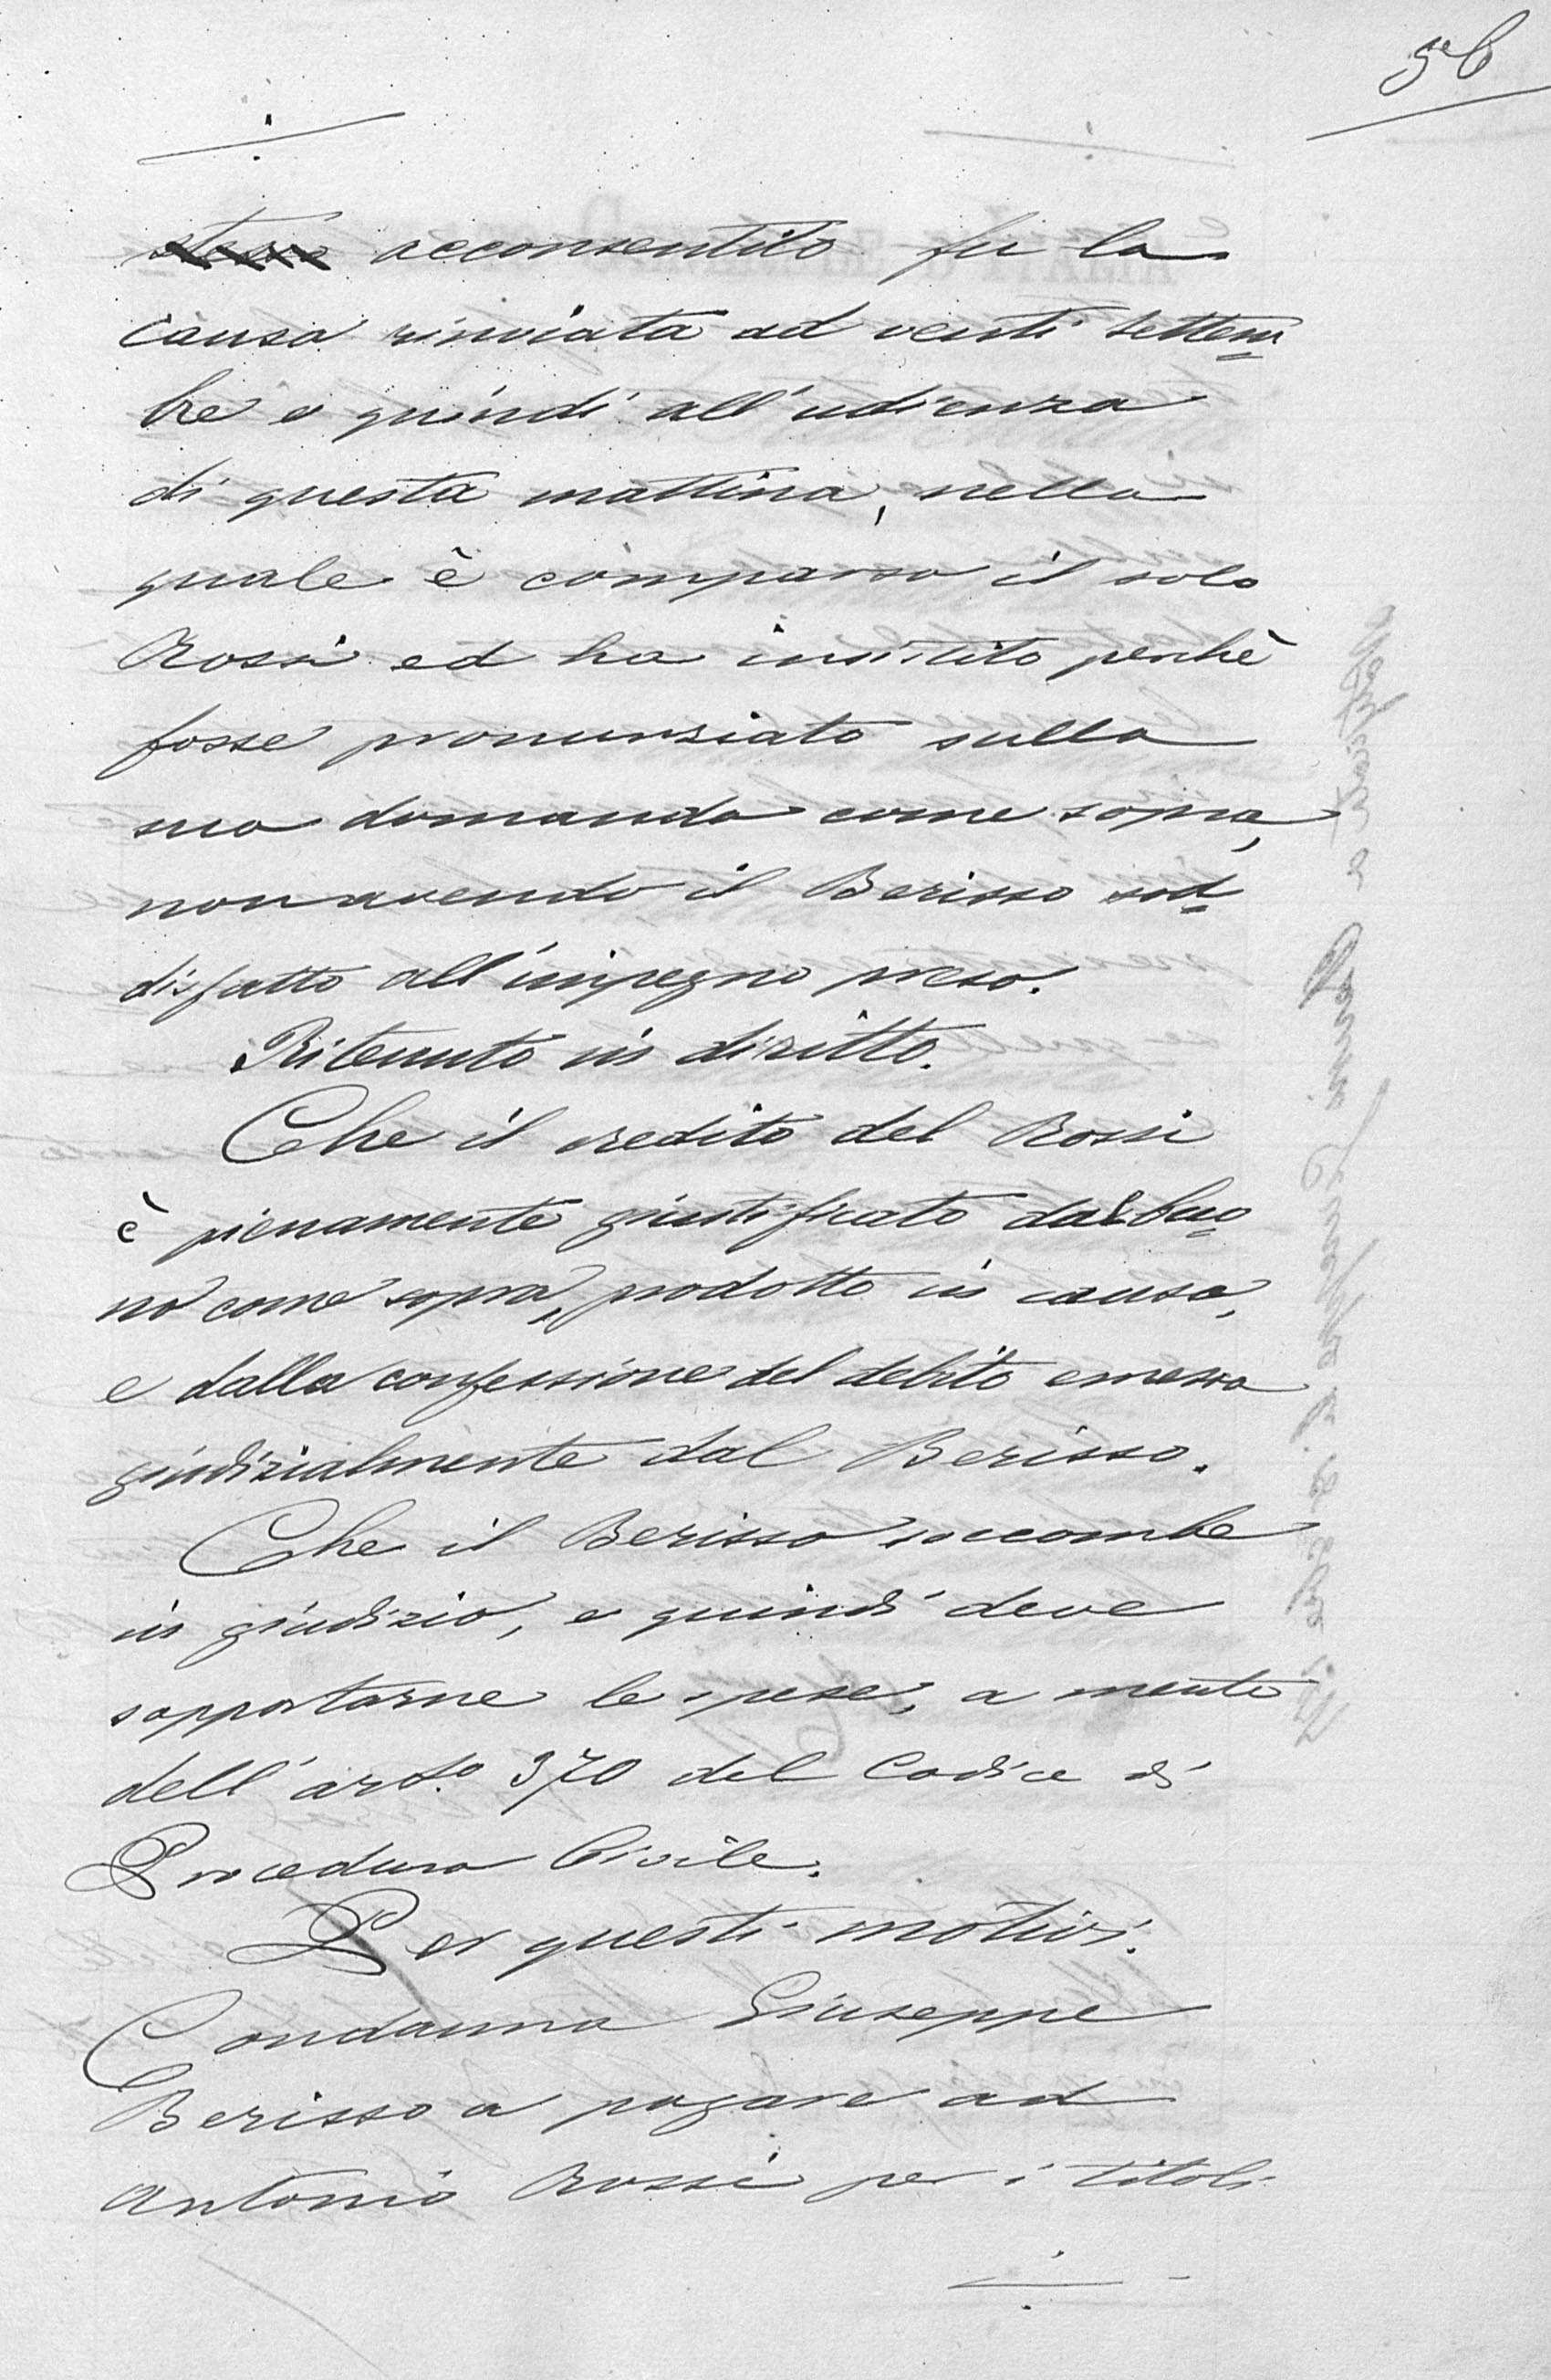 56
acconsentito fu la
causa rinviata ad venti settem=
bre e quindi all'udienza
di questa mattina, nella
quale è comparso il solo
Rossi ed ha insistito perchè
fosse pronunziato sulla
sua domanda come sopra,
non avendo il Berisso sod=
disfatto all'impegno preso.
Ritenuto in diritto.
Che il credito del Rossi
è pienamente giustificato dal buo=
no come sopra, prodotto in causa,
e dalla confessione del debito emessa
giudizialmente dal Berisso.
Che il Berisso soccombe
in giudizio, e quindi deve
sopportarne le spese, a mente
dell'arto. 370 del Codice di
Procedura Civile.
Per questi motivi.
Condanna Giuseppe
Berisso a pagare ad
Antonio Rossi per i titoli